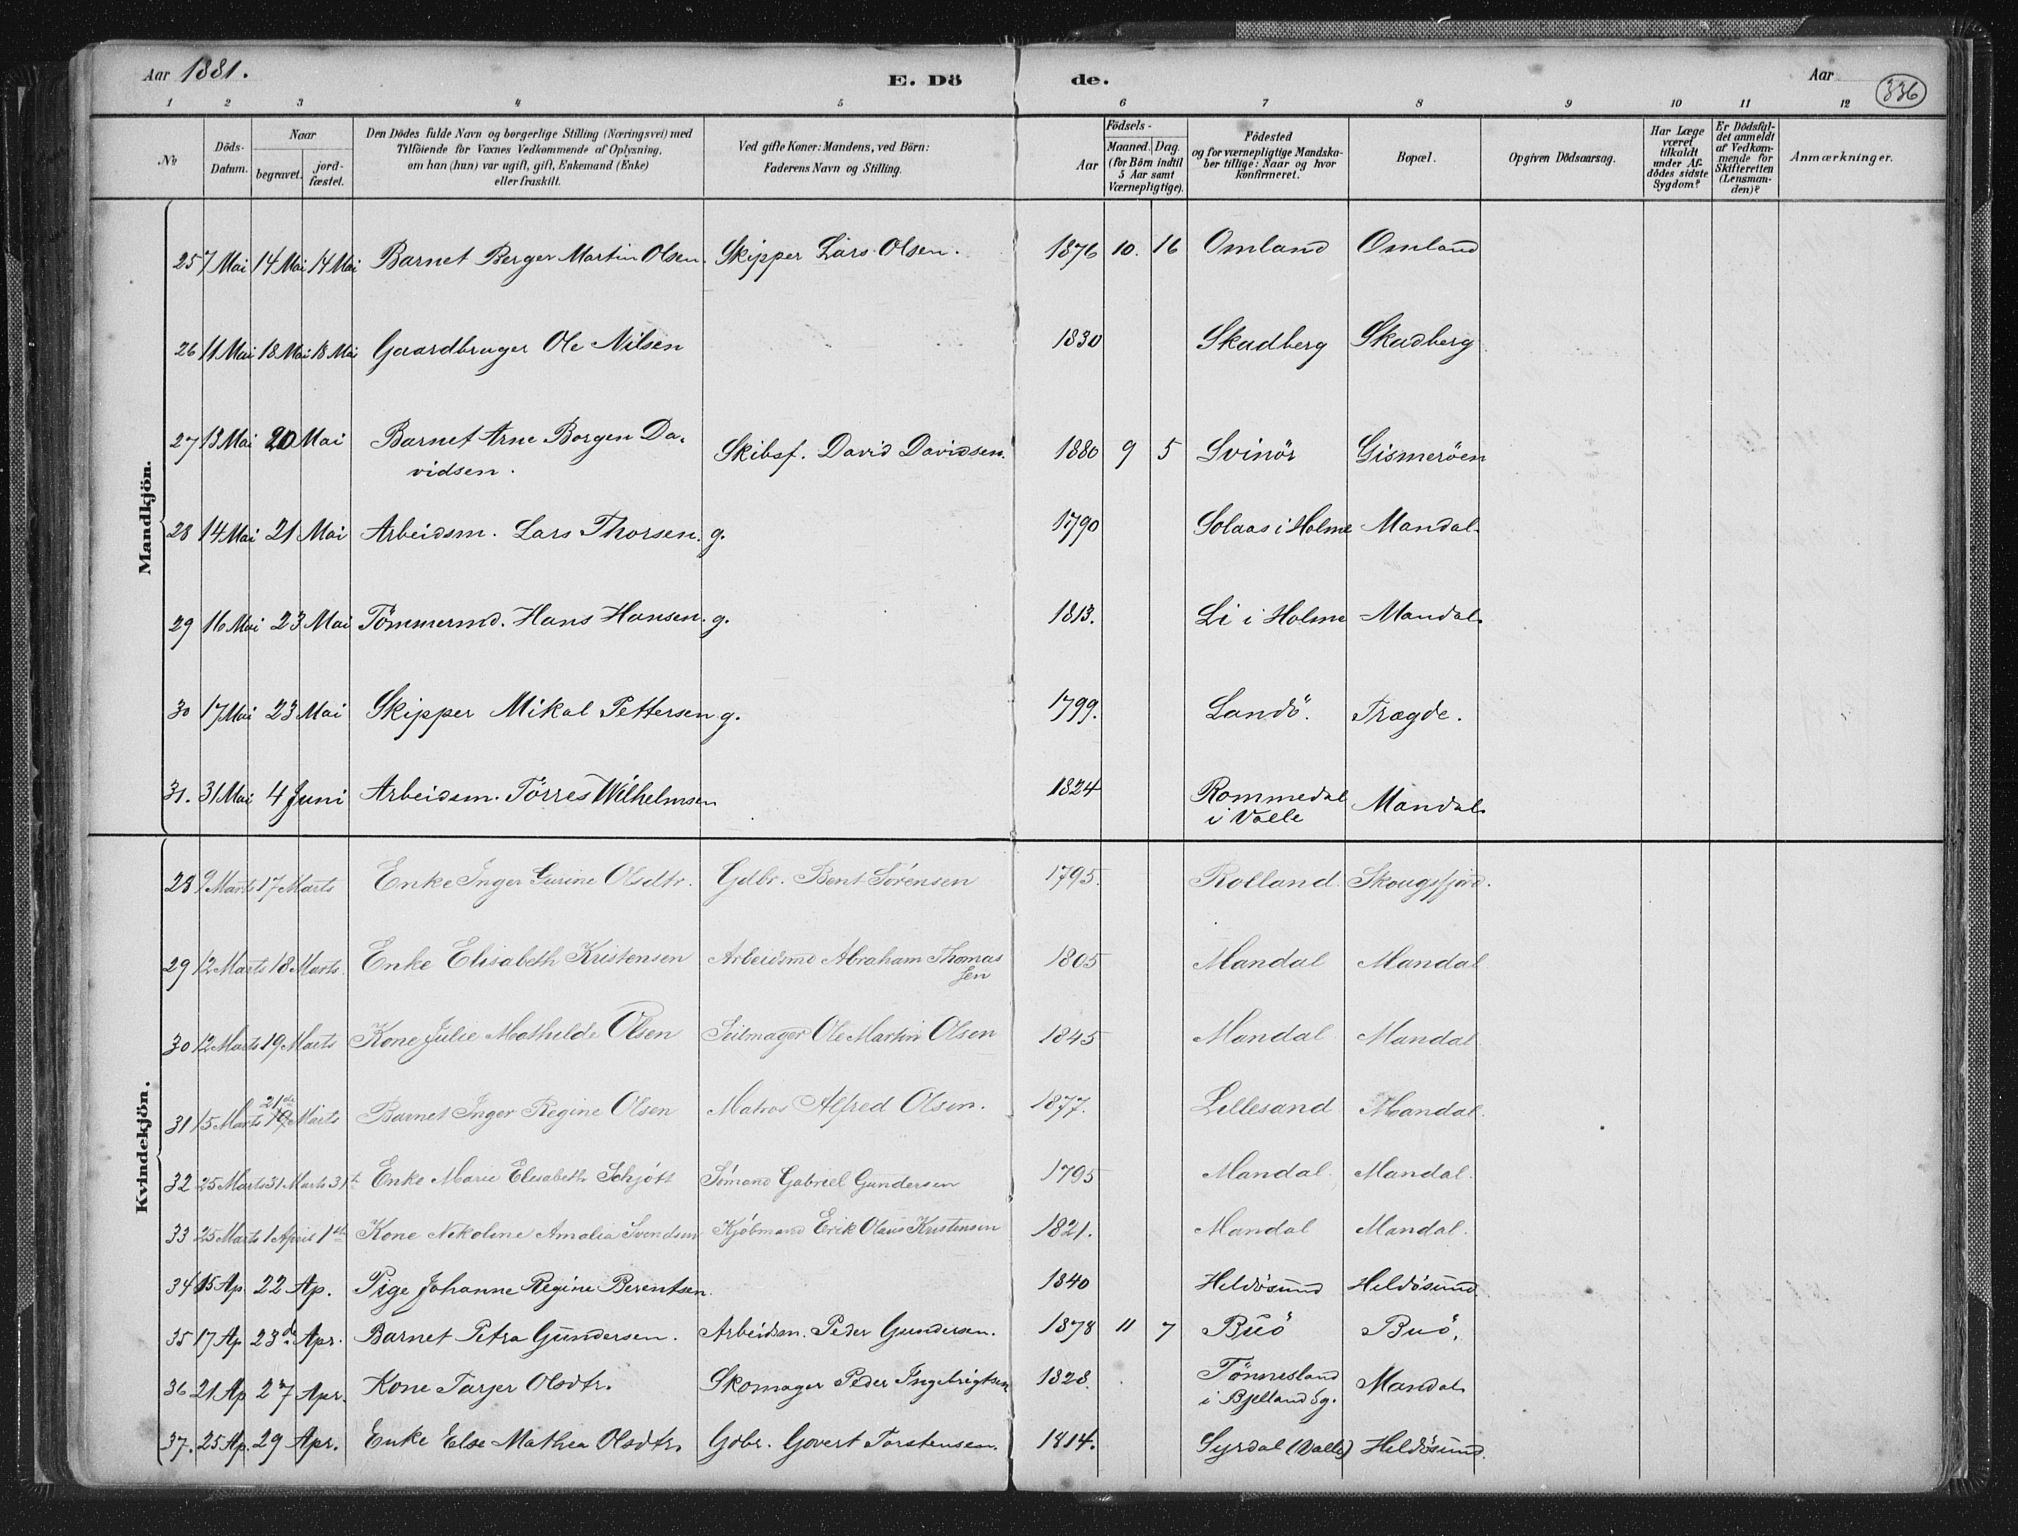 Aar 1881. E. Dö de. Aar 336
1 2 3 4 5 6 7 8 9 10 11 12
No
Döds-Datum.
Naar
begravet. jord-fæstet.
Den Dödes fulde Navn og borgerlige Stilling (Næringsvei) med
Tilföiende for Voxnes Vedkommende af Oplysning,
om han (hun) var ugift, gift, Enkemand (Enke)
eller fraskilt.
Ved gifte Koner: Mandens, ved Börn:
Faderens Navn og Stilling.
Födsels-
Aar Maaned. Dag.
(for Börn indtil
5 Aar samt
Værnepligtige).
Födested
og for værnepligtige Mandska-
ber tillige: Naar og hvor
konfirmeret.
Bopæl.
Opgiven Dödsaarsag.
Har Læge
været
tilkaldt
under Af-
dödes sidste
Sygdom?
Er Dödsfal-
det anmeldt
af Vedkom-
mende for
Skifteretten
(Lensman-
den)?
Anmærkninger.
Mandkjön.
25 7 Mai 14 Mai 14 Mai Barnet Berger Martin Olsen. Skipper Lars Olsen. 1876 10. 16 Omland Omland
26 11 Mai 18 Mai 18 Mai Gaardbruger Ole Nilsen 1830 Skadberg Skadberg
27 13 Mai 20 Mai Barnet Arne Borgen Da-
vidsen. Skibsf. David Davidsen. 1880 9 5 Svinör Gismeröen
28 14 Mai 21 Mai Arbeidsm. Lars Thorsen. g. 1790 Solaas i Holme Mandal.
29 16 Mai 23 Mai Tömmermd. Hans Hansen. g. 1813. Li i Holme Mandal.
30 17 Mai 23 Mai Skipper Mikal Pettersen g. 1799. Landö. Trægde.
31. 31 Mai 4 Juni Arbeidsm. Törres Wilhelmsen 1824 Rommedal
i Valle Mandal.
Kvindekjön.
28 9 Marts 17 Marts Enke Inger Gurine Olsdtr. Gdbr. Bent Sörensen 1795. Rolland. Skougsfjord.
29 12 Marts 18 Marts. Enke Elisabeth Kristensen Arbeidsmd Abraham Thomas
sen 1805 Mandal Mandal
30 12 Marts 19 Marts Kone Julie Mathilde Olsen Seilmager Ole Martin Olsen 1845 Mandal Mandal
21de
31 15 Marts 19 Marts Barnet Inger Regine Olsen Matros Alfred Olsen. 1877. Lillesand Mandal.
32 25 Marts 31 Marts 31t Enke Marie Elisabeth Schjött Sömand Gabriel Gundersen 1795 Mandal. Mandal.
33 25 Marts 1 April 1ste Kone Nikoline Amalia Svendsen Kjöbmand Erik Olaus Kristensen 1821. Mandal Mandal.
34 15 Ap 22 Ap. Pige Johanne Regine Berentsen. 1840 Hildösund Hildösund
35 17 Ap 23d Apr. Barnet Petra Gundersen. Arbeidsm. Peder Gundersen. 1878 11 7 Buö Buö.
36 21 Ap 27 Apr. Kone Tarjer Olsdtr. Skomager Peder Ingebrigtsen 1828. Tönnesland
i Bjelland Sg. Mandal.
37. 25 Ap. 29 Apr. Enke Else Mathea Olsdtr. Gdbr. Govert Torstensen. 1814. Syrdal (Valle) Hildösund.